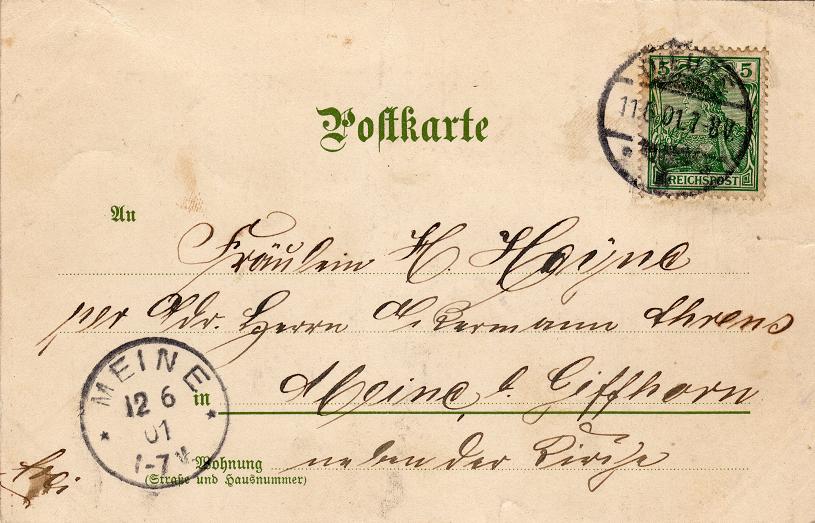 5 5
11.6.01.7-8V
REICHSPOST
Postkarte
An
Fräulein H. Heyne
per Adr. Herrn Ackermann Ehrens
MEINE
12 6
01
1-7 V
in Meine b. Giffhorn
Wohnung neben der Kirche
(Straße und Hausnummer)